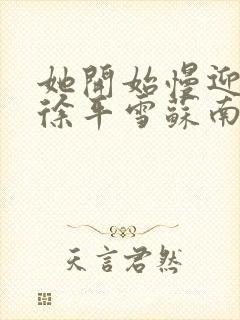 她開始慢迎
徐平雪蘇南
天言君然